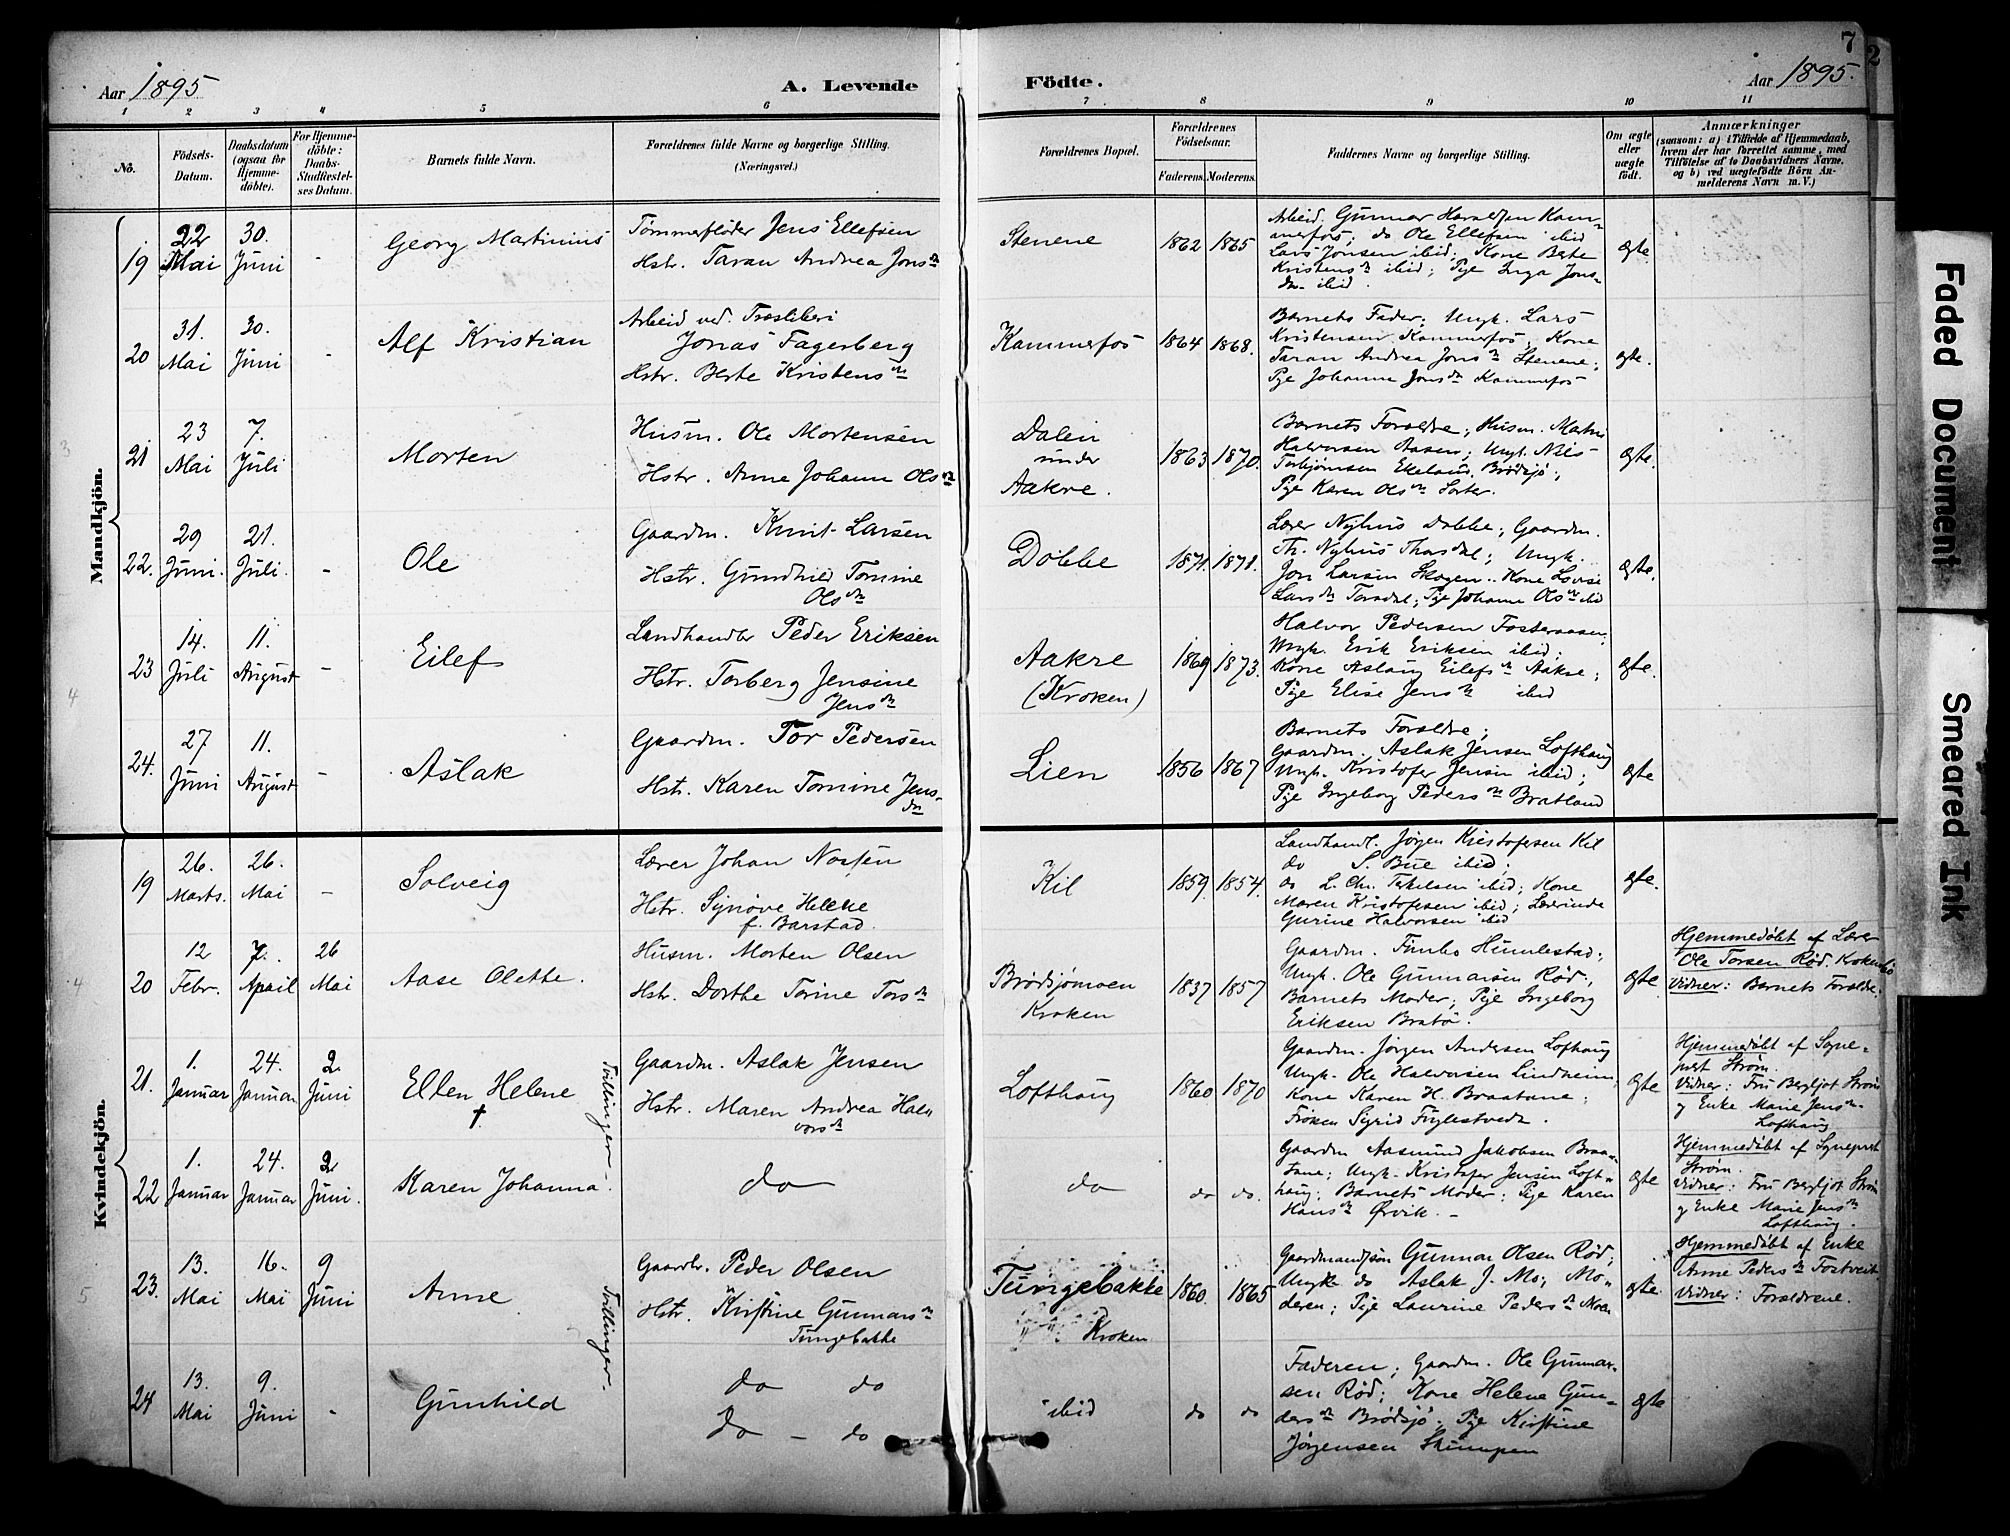 7
2
Aar 1895
A. Levende
Födte.
Aar 1895.
1 2 3 4 5 6 7 8 9 10 11
No.
Födsels-
Datum.
Daabsdatum
(ogsaa for
Hjemme-
döbte).
For Hjemme-
döbte:
Daabs-
Stadfæstel-
ses Datum.
Barnets fulde Navn.
Forældrenes fulde Navne og borgerlige Stilling.
(Næringsvei.)
Forældrenes Bopæl.
Forældrenes
Födselsaar.
Faderens. Moderens.
Faddernes Navne og borgerlige Stilling.
Om ægte
eller
uægte
født.
Anmærkninger
(saasom: a) i Tilfælde af Hjemmedaab,
hvem der har forrettet samme, med
Tilföielse af to Daabsvidners Navne,
og b) ved uægtefödte Börn An-
melderens Navn m. V.)
Mandkjön.
19
22
Mai
30.
Juni
-
Georg Martinius
Tømmerfløder Jens Ellefsen
Hstr. Taran Andrea Jonsdtr
Stenene
1862 1865
Arbeid. Gunnar Haraldsen Kam-
merfos; do Ole Ellefsen ibid
Lars Jonsen ibid; Kone Berte
Kristensdtr ibid; Pige Inga Jons-
dtr ibid.
ægte
20
31.
Mai
30.
Juni
-
Alf Kristian
Arbeid ved Træsliberi
Jonas Fagerberg
Hstr. Berte Kristensdtr
Kammerfos
1864 1868.
Barnets Fader; Ungk. Lars
Kristensen Kammerfos, Kone
Taran Andrea Jonsdtr Stenene;
Pige Johanne Jonsdtr Kammerfos
ægte.
21
23
Mai
7.
Juli
Morten
Husm. Ole Mortensen
Hstr. Anne Johanne Olsdtr
Dalen
under
Aakre.
1863 1870.
Barnets Forældre; Husm.
Halvorsen Aasen; Ungk. Nils
Torbjørnsen Ekelund, Brødsjø;
Pige Karen Olsdtr
ægte.
22.
29
Juni.
21.
Juli.
-
Ole
Gaardm. Knut Larsen
Hstr. Gundhild Tomine
Olsdtr
Dobbe
1871. 1871.
Lærer Nyhus Dobbe; Gaardm.
Th. Nyhus Thorsdal; Ungk.
Jon Larsen Skogen.. Kone Lovise
Larsdtr Torsdal; Pige Johanne Olsdtr ibid
ægte.
23
14.
Juli
11.
August
-
Eilef
Landhandler Peder Eriksen
Hstr. Torberg Jensine
Jensdtr
Aakre
(Kroken)
1869 1873.
Halvor Pedersen Fosteraasen,
Ungk. Erik Eriksen ibid;
Kone Aslaug Eilefsdtr Aakre;
Pige Elise Jensdtr ibid
ægte.
24.
27
Juni
11.
August
-
Aslak
Gaardm. Tor Pedersen
Hstr. Karen Tomine Jens-
dtr
Lien
1856 1867
Barnets Forældre;
Gaardm. Aslak Jensen Lofthaug
Ungk. Kristofer Jensen ibid;
Pige Ingeborg Pedersdtr Bratland
ægte
Kvindekjön.
19
26.
Marts.
26.
Mai
-
Solveig
Lærer Johan Nosten
Hstr. Synøve Helene
f. Barstad.
Kil
1859. 1854.
Landhandl. Jørgen Kristofersen Kil
do S. Bue ibid;
do L. Chr. Terkelsen ibid; Kone
Maren Kristofersen ibid; Lærerinde
Gurine Halvorsen ibid
ægte.
20
12
Febr.
7.
April
26
Mai
Aase Olette.
Husm. Morten Olsen
Hstr. Dorthe Torine Torsdtr
Brødsjømoen
Kroken
1837 1857
Gaardm. Timbo Humlestad;
Ungk. Ole Gunnarsen Rød;
Barnets Moder; Pige Ingeborg
Eriksen Bratø.
ægte
Hjemmedøbt af Lærer
Ole Torsen Rød.
Vidner: Barnets Forældre.
21.
1.
Januar
24.
Januar
2.
Juni
Ellen Helene
†
Tvillinger
Gaardm. Aslak Jensen
Hstr. Maren Andrea Hal-
vorsdtr
Lofthaug
1860 1870
Gaardm. Jørgen Andersen Lofthaug
Ungk. Ole Halvorsen Lindheim,
Kone Karen H. Braatane;
Frøken Sigrid Fuglestvedt.
ægte
Hjemmedøbt af Sogne-
prest Strøm.
Vidner: Fru Bergljot Strøm
og Enke Marie Jensdtr
Lofthaug
22
1.
Januar
24.
Januar
2
Juni.
Karen Johanna.
do
do
do do.
Gaardm Aasmund Jakobsen Braa-
tane; Ungk. Kristofer Jensen Loft-
haug; Barnets Moder; Pige Karen
Hansdtr Ørvik. -
ægte
Hjemmedøbt af Sogneprest
Strøm.
Vidner: Fru Bergljot Strøm
og Enke Marie Jensdtr
Lofthaug.
23.
13.
Mai
16.
Mai
9
Juni
Anne
Tvillinger.
Gaardbr. Peder Olsen
Hstr. Kirstine Gunnarsdtr
Tungebakke
Tungebakke
" " Kroken
1860. 1865
Gaardmandssøn Gunnar Olsen Rød;
Ungk do Aslak J. Mo; Mo-
deren; Pige Laurine Pedersdtr Moen
ægte.
Hjemmedøbt af Enke
Anne Pedersdtr Fostveit
Vidner: Forældrene.
24
13.
Mai
9.
Juni
-
Gunhild
do do
do - do
ibid
do do
Faderen; Gaardm. Ole Gunnar-
sen Rød; Kone Helene Gun-
dersdtr Brødsjø; Pige Kirstine
Jørgensen Skumpen
ægte
Faded Document
Smeared Ink